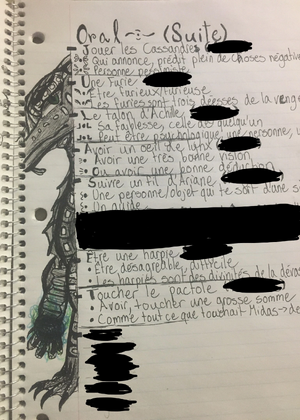 Oral (Suite)
Jouer les Cassandre
Qui annonce, prédit plein de choses négatives
Personne pessimiste
Une furie
Être furieux/furieuse
Les furies sont trois déesses de la venge
Le talon d'Achille
Sa faiblesse, celle de quelqu'un
Peut être psychologique, une personne, u
Avoir un œil de lynx
Avoir une très bonne vision
Ou avoir une bonne déduction
Suivre un fil d'Ariane
Une personne/objet qui te sort d'une s
Un guide
Être une harpie
Être désagréable, difficile
Les harpies sont des divinités de la déva
Toucher le pactole
Avoir, toucher une grosse somme
Comme tout ce que touchait Midas → de